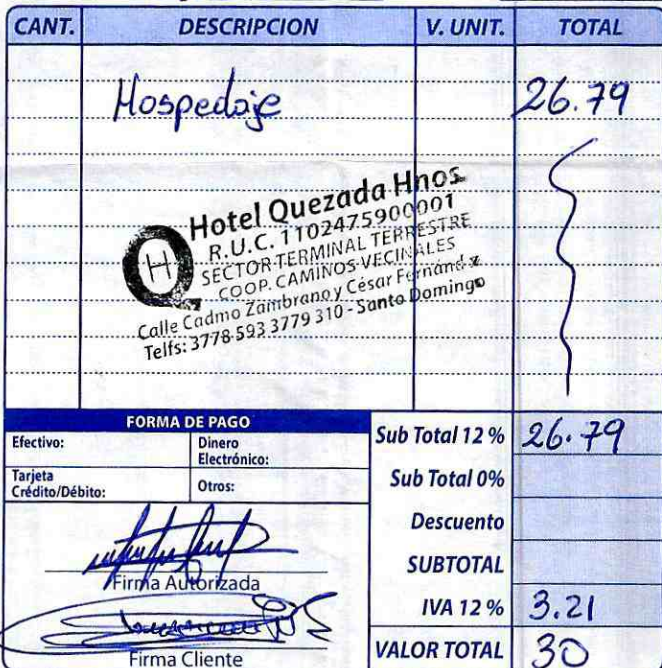 CANT. DESCRIPCION V. UNIT. TOTAL
Hospedaje 26.79
Hotel Quezada Hnos
R.U.C. 1102475900001
SECTOR TERMINAL TERRESTRE
COOP. CAMINOS VECINALES
Calle Cadmo Zambrano y César Fernández
Telfs: 3778 593 3779 310 - Santo Domingo
QH
FORMA DE PAGO
Efectivo: Dinero Electrónico:
Tarjeta Crédito/Débito: Otros:
Sub Total 12 % 26.79
Sub Total 0%
Descuento
SUBTOTAL
Firma Autorizada
IVA 12 % 3.21
Firma Cliente
VALOR TOTAL 30